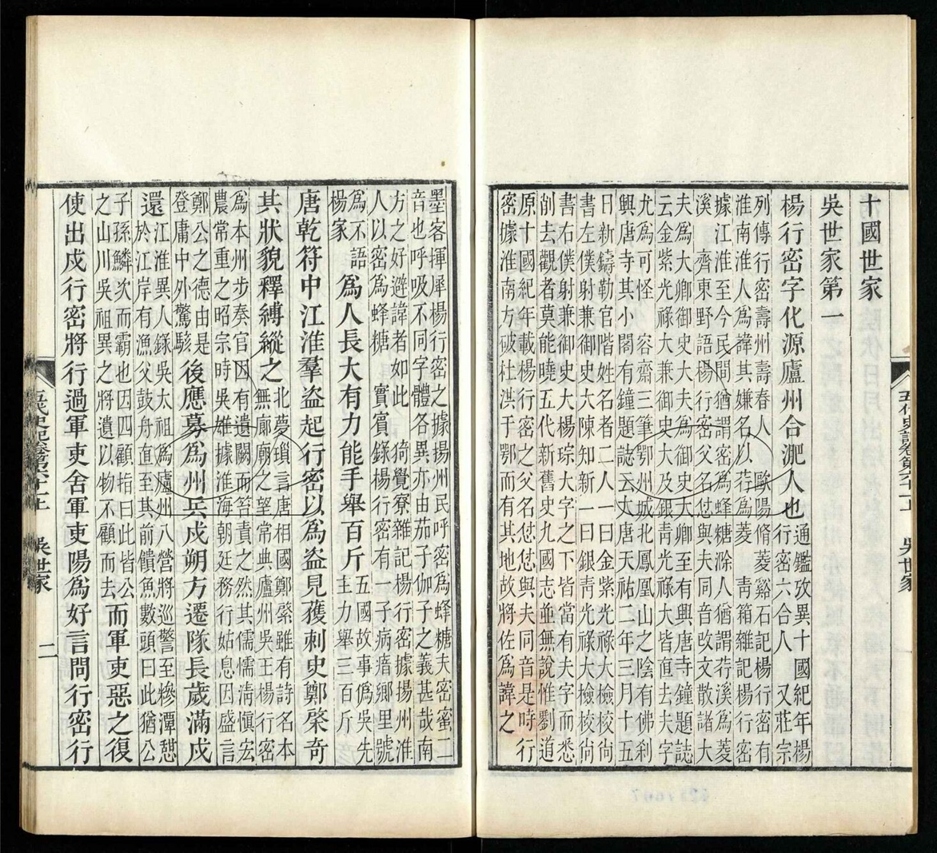 十國世家
吳世家第一
楊行密字化源廬州合淝人也通鑑攷異十國紀年楊
行密六合人 又莊宗
列傳行密壽州壽春人 歐陽脩菱谿石記楊行密有
淮南淮人爲諱其嫌名以荇爲菱 靑箱雜記楊行密
據江淮至今民間猶謂蜜爲蜂糖滁人猶謂荇溪爲菱
溪 齊東野語楊行密父名怤與夫同音改文散諸大
夫爲大卿御史大夫爲御史大卿至有興唐寺鐘題誌
云金紫光祿大兼御史大及銀靑光祿大皆直去夫字
尤爲可怪 容齋三筆鄂州城北鳳凰山之陰有佛刹曰
興唐寺其小閣有鐘題誌云大唐天祐二年三月十五
日新鑄勒官階姓名者二人一曰金紫光祿大檢校尚
書左僕射兼御史大陳知新一曰銀靑光祿大檢校尚
書右僕射兼御史大楊琮大字之下皆當有夫字而悉
削去觀者莫能曉五代新舊史九國志並無說惟劉道
原十國紀年載楊行密之父名怤怤與夫同音是時行
密據淮南方破杜洪于鄂而有其地故將佐爲諱之
五代史記卷第六十一上 吳世家
墨客揮犀楊行密之據揚州民呼密爲蜂糖夫密蜜二
音也呼吸不同字體各異亦由茄子伽子之義甚哉南
方之好避諱者如此 猗覺寮雜記楊行密據揚州淮
人以密爲蜂糖 賓賓錄楊行密有一子病瘖鄉里
爲不語
楊家
爲人長大有力能手舉百斤五國故事僞吳先
主力舉三百斤
唐乾符中江淮羣盜起行密以爲盜見獲刺史鄭棨奇
其狀貌釋縛縱之北夢瑣言唐相國鄭綮雖有詩名本
無廊廟之望常典廬州吳王楊行密
爲本州步奏官因有遺闕而笞責之然其儒懦淸愼宏
農常重之昭宗時吳雄據淮海朝廷務行姑息因盛言
鄭公之德由是
登庸中外驚駭
後應募爲州兵戍朔方遷隊長歲滿戍
還江淮異人錄吳太祖爲廬州八營將巡警至糝潭憇
於江岸有漁父鼓舟直至其前饋魚數頭曰此猶公
子孫鱗次而霸也因四顧指曰此皆公
之山川吳祖異之將遺以物不顧而去
而軍吏惡之復
使出戍行密將行過軍吏舍軍吏陽爲好言問行密行
五代史記卷第六十一上 吳世家 二